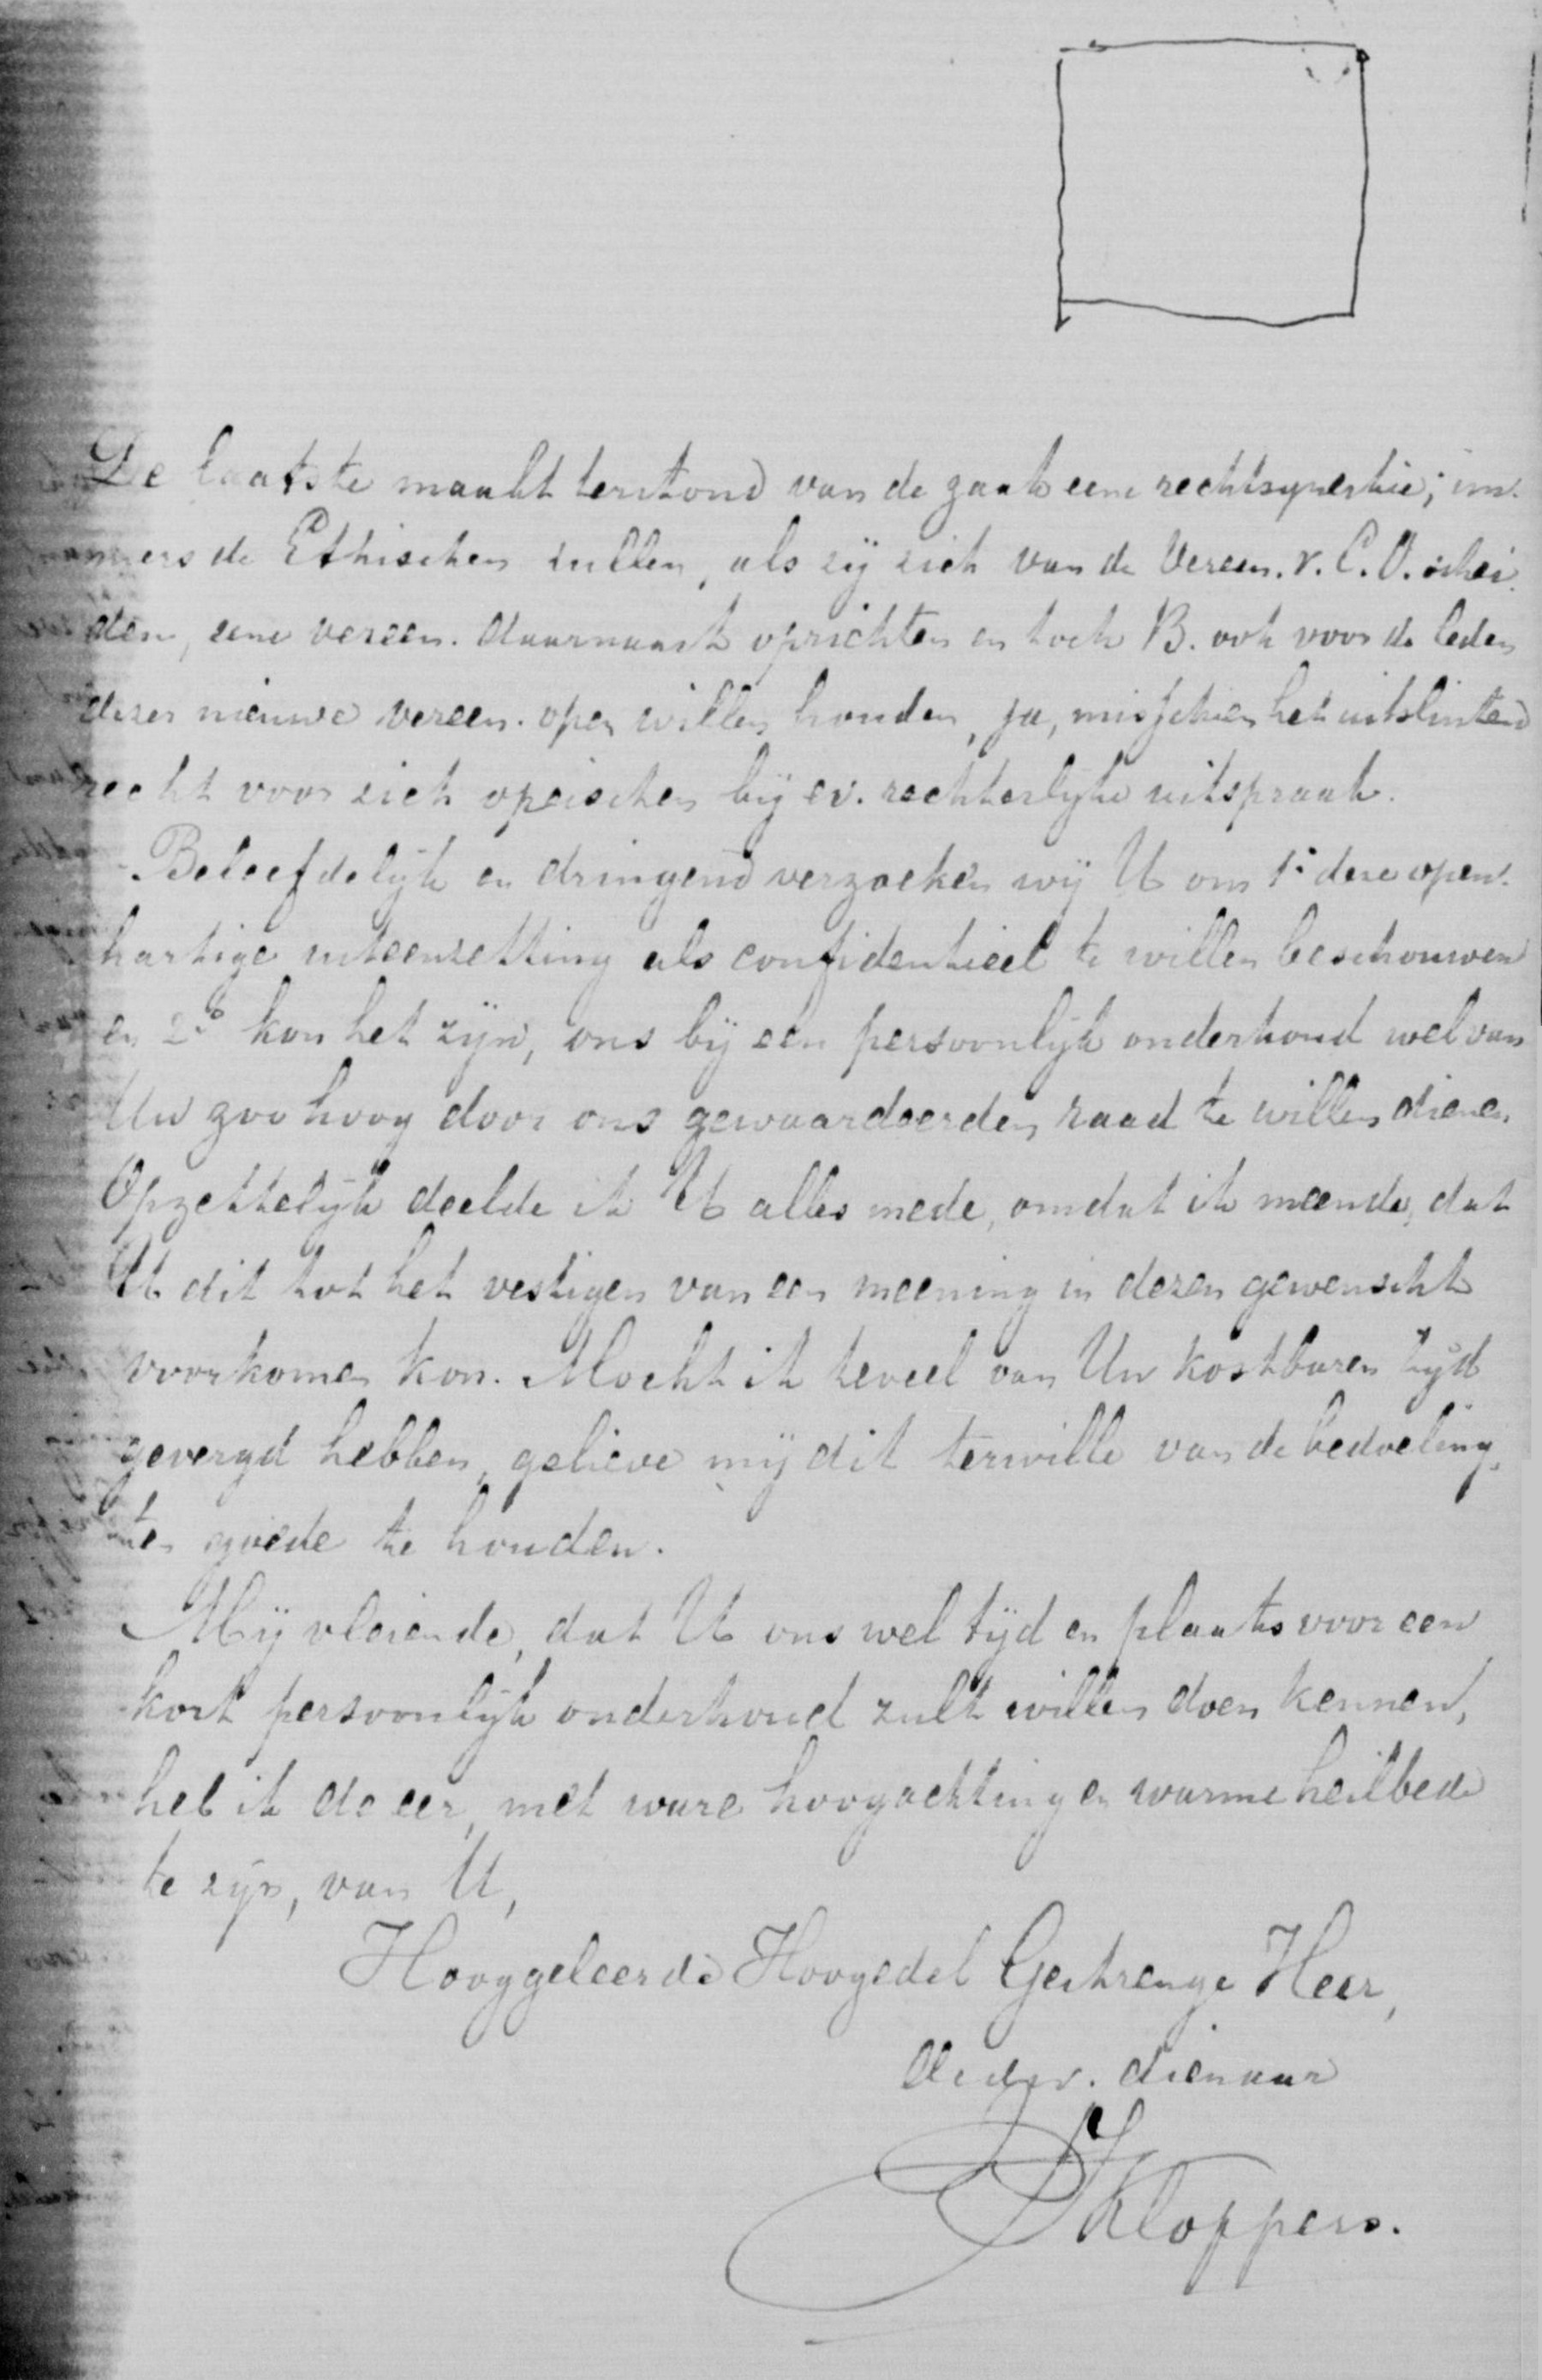 De laatste maakt terstond van de zaak eene rechtsquestie; im-
mers de Ethischen zullen, als zij zich van de Vereen. v. C. O. schei-
den, eene vereen. daarnaast oprichten en toch B. ook voor de leden
dezer nieuwe vereen. open willen houden, ja, misschien het uitsluitend
recht voor zich opeischen bij ev. rechterlijke uitspraak.
Beleefdelijk en dringend verzoeken wij U om 1o deze open-
hartige uiteenzetting als confidentieel te willen beschouwen
en 2o kon het zijn, ons bij een persoonlijk onderhoud wel van
Uw zoo hoog door ons gewaardeerden raad te willen dienen.
Opzettelijk deelde ik U alles mede, omdat ik meende, dat
U dit tot het vestigen van een meening in dezen gewenscht
voorkomen kon. Mocht ik teveel van Uw kostbaren tijd
gevergd hebben, gelieve mij dit terwille van de bedoeling,
ten goede te houden.
Mij vleiende, dat U ons wel tijd en plaats voor een
kort persoonlijk onderhoud zult willen doen kennen,
heb ik de eer, met ware hoogachting en warme heilbede
te zijn, van U,
Hooggeleerde Hoogedel Gestrenge Heer,
de dw. dienaar
Kloppers.